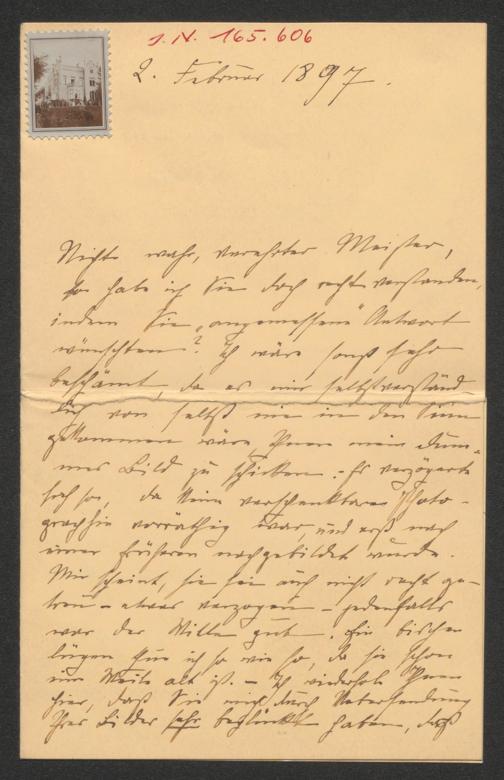 I. N. 165.606
2. Februar 1897.
Nicht wahr, verehrter Meister,
so habe ich Sie doch recht verstanden,
indem Sie „angemessene" Antwort
wünschten? Ich wäre sonst sehr
beschämt, da es mir selbstverständ-
lich von selbst nie in den Sinn
gekommen wäre Ihnen mein dum-
mes Bild zu schicken. - Es verzögerte
sich so, da keine verschenkbare Photo-
graphie vorräthig war, und erst nach
einer früheren nachgebildet wurde.
Mir scheint, sie sei auch nicht recht ge-
treu - etwas verzogen - jedenfalls
war der Wille gut. Ein bischen
lügen thue ich so wie so, da sie schon
eine Weile alt ist. - Ich wiederhole Ihnen
hier, daß Sie mich durch Uebersendung
Ihrer Bilder sehr beglückt haben, daß